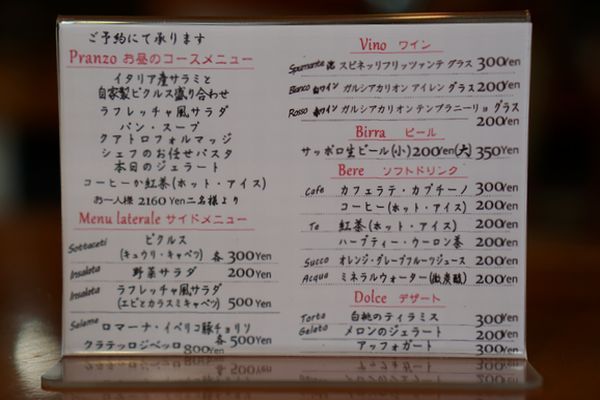 ご予約にて承ります
Pranzo お昼のコースメニュー
イタリア産サラミと
自家製ピクルス盛り合わせ
ラフレッチャ風サラダ
パン・スープ
クアトロフォルマッジ
シェフのお任せパスタ
本日のジェラート
コーヒーか紅茶(ホット・アイス)
お一人様 2160Yen 二名様より
Menu laterale サイドメニュー
Sottaceti ピクルス
(キュウリ・キャベツ) 各 300Yen
Insalata 野菜サラダ 200Yen
Insalata ラフレッチャ風サラダ
(エビとカラスミキャベツ) 500Yen
Salame ロマーナ・イベリコ豚チョリソ
クラテッロジベッロ 各 500Yen
800Yen
Vino ワイン
Spumante 泡 スピネッリフリッツァンテ グラス 300Yen
Bianco 白ワイン ガルシアカリオン アイレン グラス 200Yen
Rosso 赤ワイン ガルシアカリオン テンプラニーリョ グラス
200Yen
Birra ビール
サッポロ生ビール(小) 200Yen (大) 350Yen
Bere ソフトドリンク
Cafe カフェラテ・カプチーノ 300Yen
コーヒー(ホット・アイス) 200Yen
Te 紅茶(ホット・アイス) 200Yen
ハーブティー・ウーロン茶 200Yen
Succo オレンジ・グレープフルーツジュース 200Yen
Acqua ミネラルウォーター(微炭酸) 200Yen
Dolce デザート
Torta 白桃のティラミス 300Yen
Gelato メロンのジェラート 200Yen
アッフォガート 300Yen